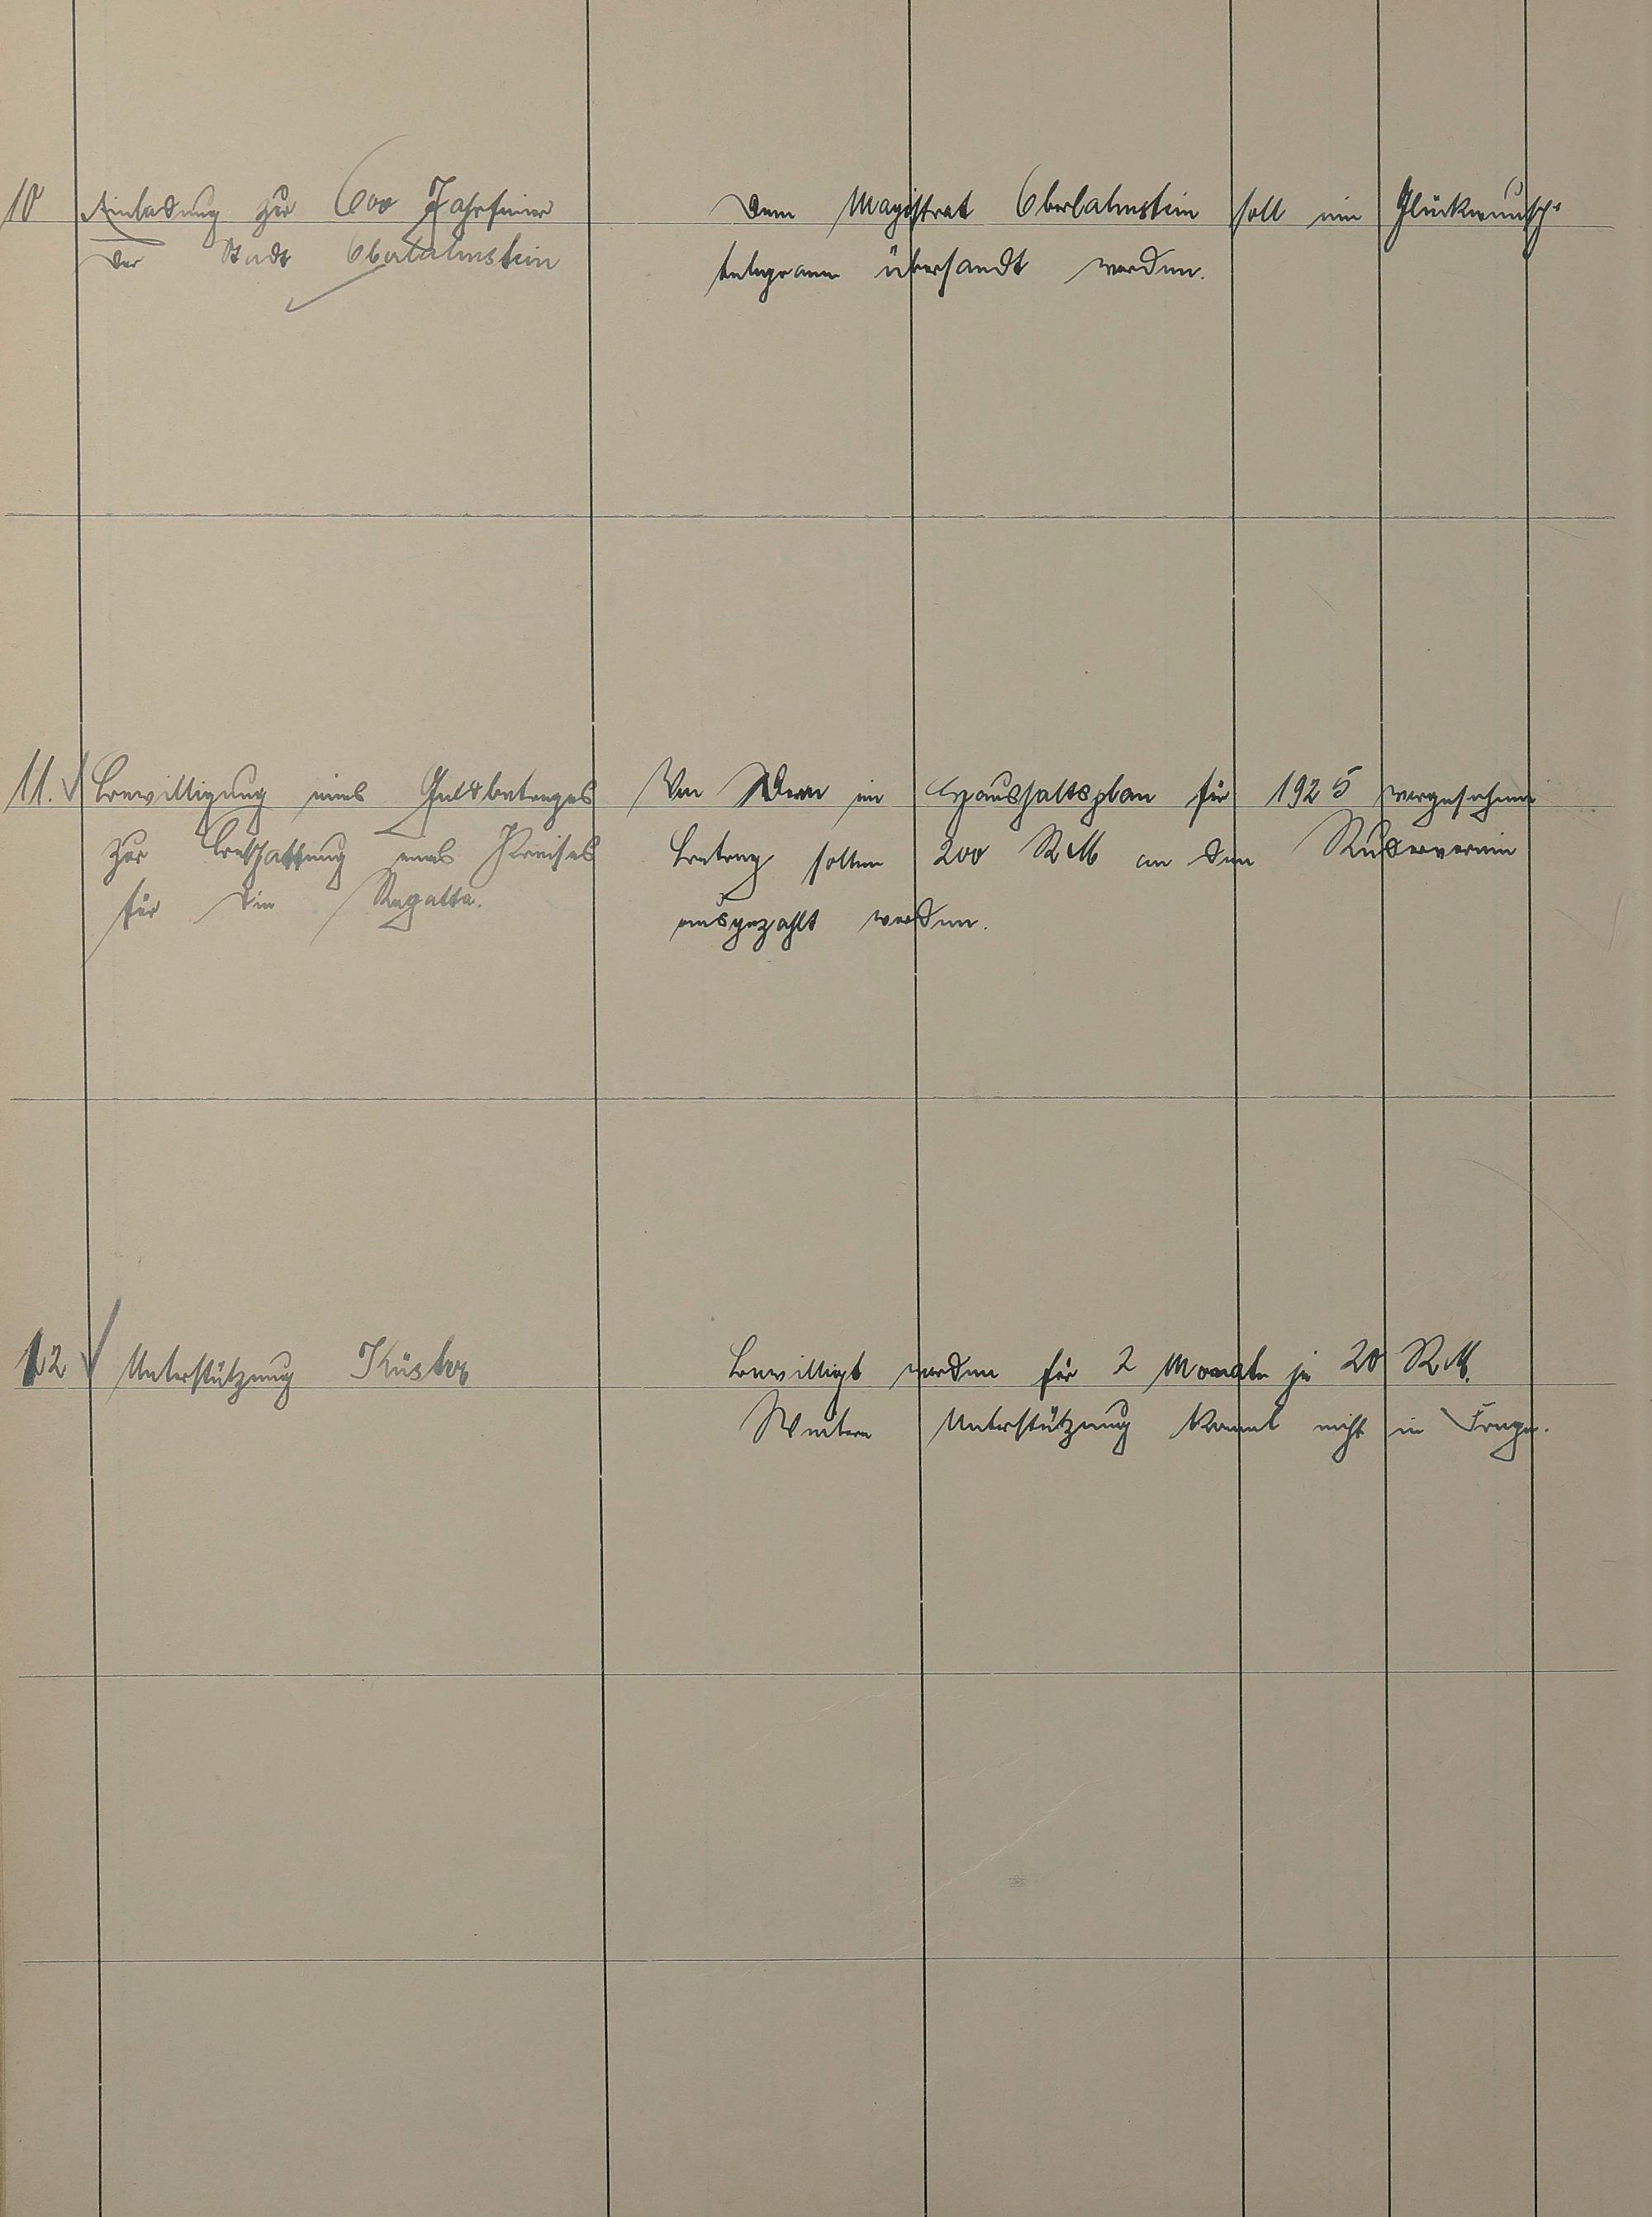 10 Einladung zur 600 Jahrfeier
der Stadt Oberlahnstein
Dem Magistrat Oberlahnstein soll ein Glückwunsch-
telegramm übersandt werden.
11. Bewilligung eines Geldbetrages
zur Beschaffung eines Preises
für die Regatta.
Von dem im Haushaltsplan für 1925 vorgesehenen
Betrag sollen 200 RM an den Ruderverein
ausgezahlt werden.
12 Unterstützung Küster
Bewilligt werden für 2 Monate je 20 RM.
Weitere Unterstützung kommt nicht in Frage.